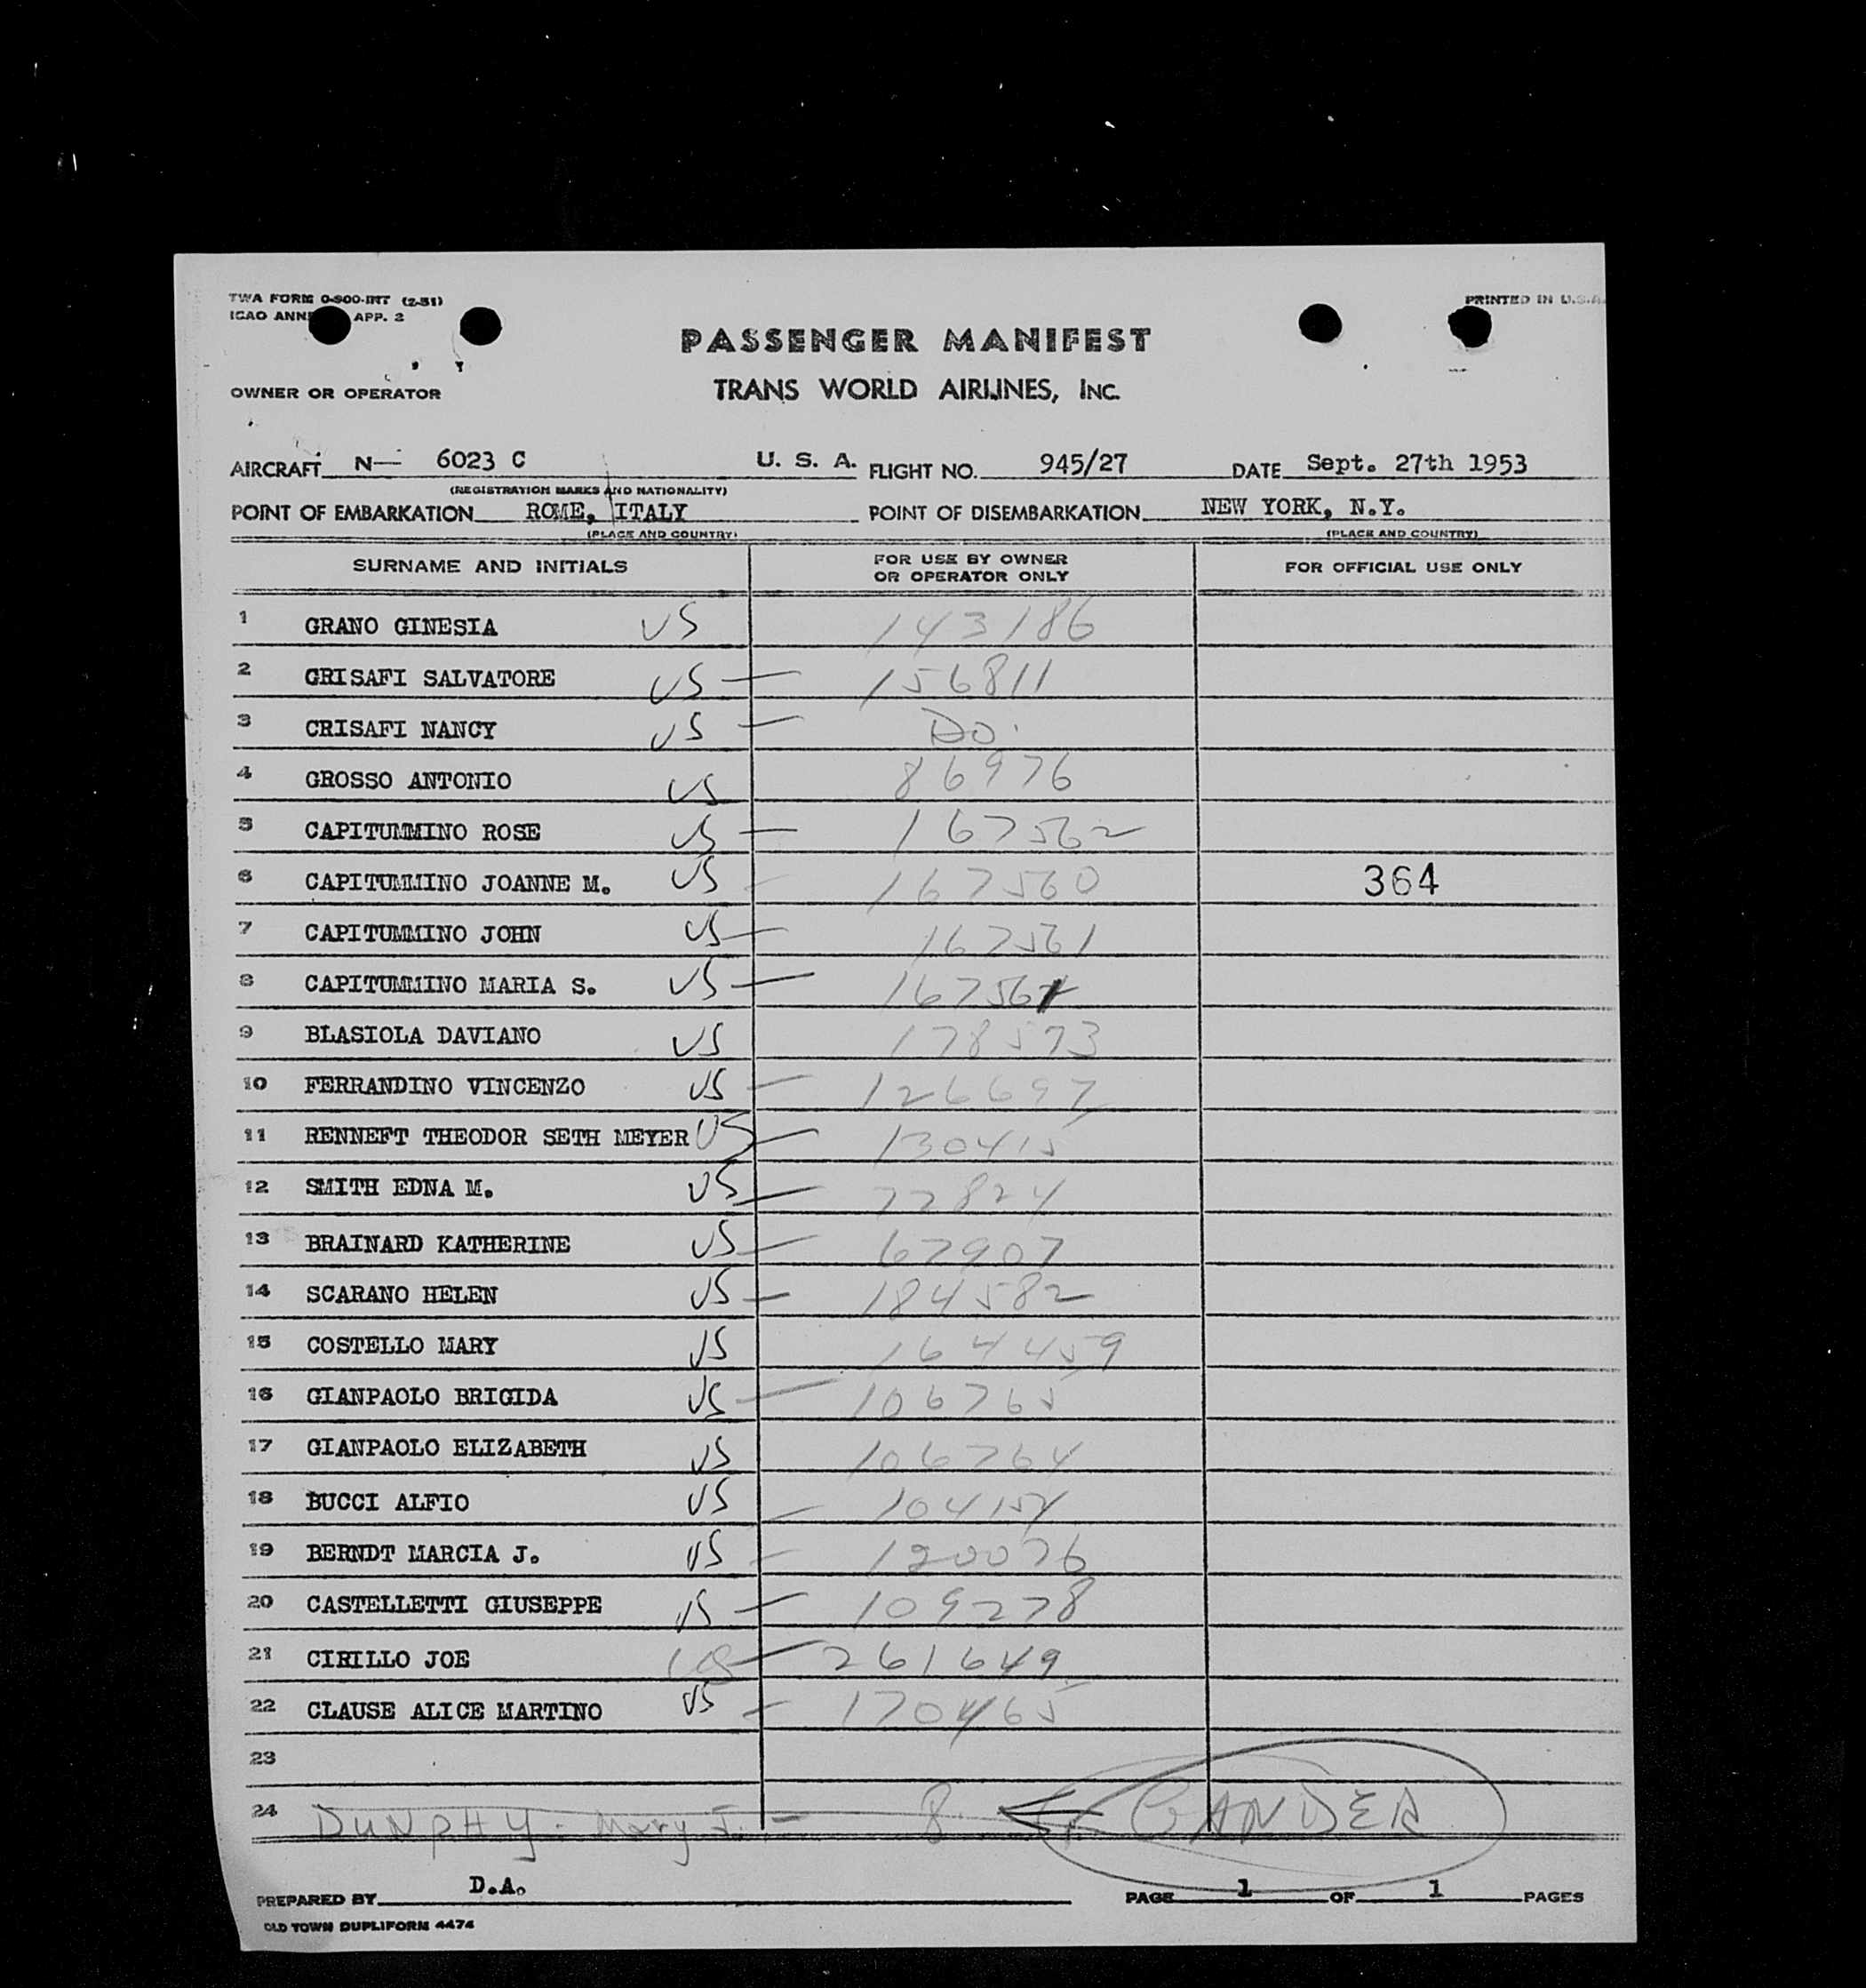 TWA FORM 0-800-INT (2-51)
PRINTED IN U.S.A.
ICAO ANNE APP. 2
PASSENGER MANIFEST
OWNER OR OPERATOR
TRANS WORLD AIRLINES, INC.
AIRCRAFT N— 6023 C U. S. A. FLIGHT NO. 945/27 DATE Sept. 27th 1953
(REGISTRATION MARKS AND NATIONALITY)
POINT OF EMBARKATION ROME, ITALY POINT OF DISEMBARKATION NEW YORK, N.Y.
(PLACE AND COUNTRY) (PLACE AND COUNTRY)
SURNAME AND INITIALS FOR USE BY OWNER OR OPERATOR ONLY FOR OFFICIAL USE ONLY
1 GRANO GINESIA US 143186
2 GRISAFI SALVATORE US — 156811
3 CRISAFI NANCY US — Do.
4 GROSSO ANTONIO US 86976
5 CAPITUMMINO ROSE US — 167562
6 CAPITUMMINO JOANNE M. US — 167560 364
7 CAPITUMMINO JOHN US — 167561
8 CAPITUMMINO MARIA S. US —
9 BLASIOLA DAVIANO US 178573
10 FERRANDINO VINCENZO US — 126697
11 RENNEFT THEODOR SETH MEYER US — 130415
12 SMITH EDNA M. US — 77824
13 BRAINARD KATHERINE US — 67907
14 SCARANO HELEN US — 184582
15 COSTELLO MARY US 164459
16 GIANPAOLO BRIGIDA US — 106765
17 GIANPAOLO ELIZABETH US 106764
18 BUCCI ALFIO US — 104154
19 BERNDT MARCIA J. US — 120076
20 CASTELLETTI GIUSEPPE US — 109278
21 CIRILLO JOE US — 261649
22 CLAUSE ALICE MARTINO US — 170465
23
24 DUNPHY - Mary J. — 8 GANDER
PREPARED BY D.A. PAGE 1 OF 1 PAGES
OLD TOWN DUPLIFORM 4474